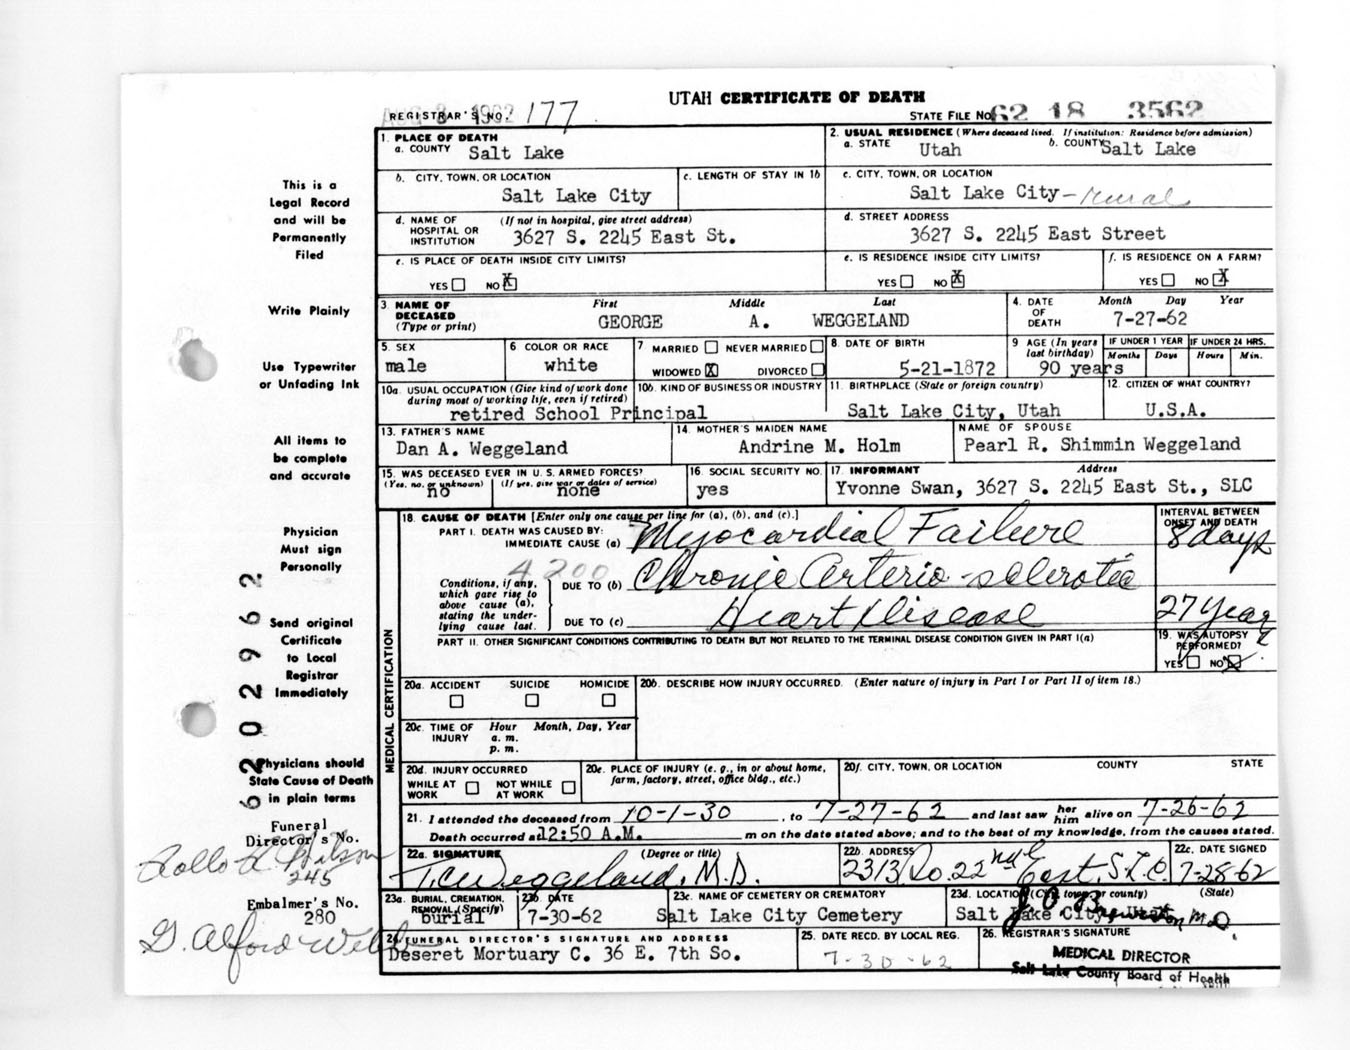 UTAH CERTIFICATE OF DEATH
AUG 3 1962
REGISTRAR'S NO. 177
STATE FILE NO. 62 18 3562
1. PLACE OF DEATH
a. COUNTY Salt Lake
2. USUAL RESIDENCE (Where deceased lived. If institution: Residence before admission)
a. STATE Utah b. COUNTY Salt Lake
b. CITY, TOWN, OR LOCATION Salt Lake City
c. LENGTH OF STAY IN 1b
c. CITY, TOWN, OR LOCATION Salt Lake City - Rural
d. NAME OF HOSPITAL OR INSTITUTION (If not in hospital, give street address) 3627 S. 2245 East St.
d. STREET ADDRESS 3627 S. 2245 East Street
e. IS PLACE OF DEATH INSIDE CITY LIMITS? YES NO X
e. IS RESIDENCE INSIDE CITY LIMITS? YES NO X
f. IS RESIDENCE ON A FARM? YES NO X
3. NAME OF DECEASED (Type or print) First Middle Last
GEORGE A. WEGGELAND
4. DATE OF DEATH Month Day Year
7-27-62
5. SEX male
6 COLOR OR RACE white
7 MARRIED NEVER MARRIED
WIDOWED X DIVORCED
8. DATE OF BIRTH 5-21-1872
9 AGE (In years last birthday) 90 years
IF UNDER 1 YEAR Months Days
IF UNDER 24 HRS. Hours Min.
10a. USUAL OCCUPATION (Give kind of work done during most of working life, even if retired) retired School Principal
10b. KIND OF BUSINESS OR INDUSTRY
11. BIRTHPLACE (State or foreign country) Salt Lake City, Utah
12. CITIZEN OF WHAT COUNTRY? U.S.A.
13. FATHER'S NAME Dan A. Weggeland
14. MOTHER'S MAIDEN NAME Andrine M. Holm
NAME OF SPOUSE Pearl R. Shimmin Weggeland
15. WAS DECEASED EVER IN U. S. ARMED FORCES?
(Yes, no, or unknown) no (If yes, give war or dates of service) none
16. SOCIAL SECURITY NO. yes
17. INFORMANT Address
Yvonne Swan, 3627 S. 2245 East St., SLC
18. CAUSE OF DEATH [Enter only one cause per line for (a), (b), and (c).]
INTERVAL BETWEEN ONSET AND DEATH
PART I. DEATH WAS CAUSED BY:
IMMEDIATE CAUSE (a) Myocardial Failure 8 days
4200
Conditions, if any, which gave rise to above cause (a), stating the underlying cause last.
DUE TO (b) Chronic Arterio-sclerotic
DUE TO (c) Heart Disease 27 years
PART II. OTHER SIGNIFICANT CONDITIONS CONTRIBUTING TO DEATH BUT NOT RELATED TO THE TERMINAL DISEASE CONDITION GIVEN IN PART I(a)
19. WAS AUTOPSY PERFORMED?
YES NO X
MEDICAL CERTIFICATION
20a. ACCIDENT SUICIDE HOMICIDE
20b. DESCRIBE HOW INJURY OCCURRED. (Enter nature of injury in Part I or Part II of item 18.)
20c. TIME OF INJURY Hour a. m. p. m. Month, Day, Year
20d. INJURY OCCURRED
WHILE AT WORK NOT WHILE AT WORK
20e. PLACE OF INJURY (e. g., in or about home, farm, factory, street, office bldg., etc.)
20f. CITY, TOWN, OR LOCATION COUNTY STATE
21. I attended the deceased from 10-1-30, to 7-27-62 and last saw her him alive on 7-26-62
Death occurred at 12:50 A.M. m on the date stated above; and to the best of my knowledge, from the causes stated.
22a. SIGNATURE (Degree or title)
T.C. Weggeland, M.D.
22b. ADDRESS
2313 So. 22nd East, S.L.C.
22c. DATE SIGNED
7-28-62
23a. BURIAL, CREMATION, REMOVAL (Specify) burial
23b. DATE 7-30-62
23c. NAME OF CEMETERY OR CREMATORY Salt Lake City Cemetery
23d. LOCATION (City, town, or county) (State)
Salt Lake City, Utah
24. FUNERAL DIRECTOR'S SIGNATURE AND ADDRESS
Deseret Mortuary C. 36 E. 7th So.
25. DATE RECD. BY LOCAL REG.
7-30-62
26. REGISTRAR'S SIGNATURE
M.D.
MEDICAL DIRECTOR
Salt Lake County Board of Health
This is a
Legal Record
and will be
Permanently
Filed
Write Plainly
Use Typewriter
or Unfading Ink
All items to
be complete
and accurate
Physician
Must sign
Personally
Send original
Certificate
to Local
Registrar
Immediately
Physicians should
State Cause of Death
in plain terms
Funeral
Director's No.
Rollo K. Watson
245
Embalmer's No.
280
G. Alford Webb
62 029962